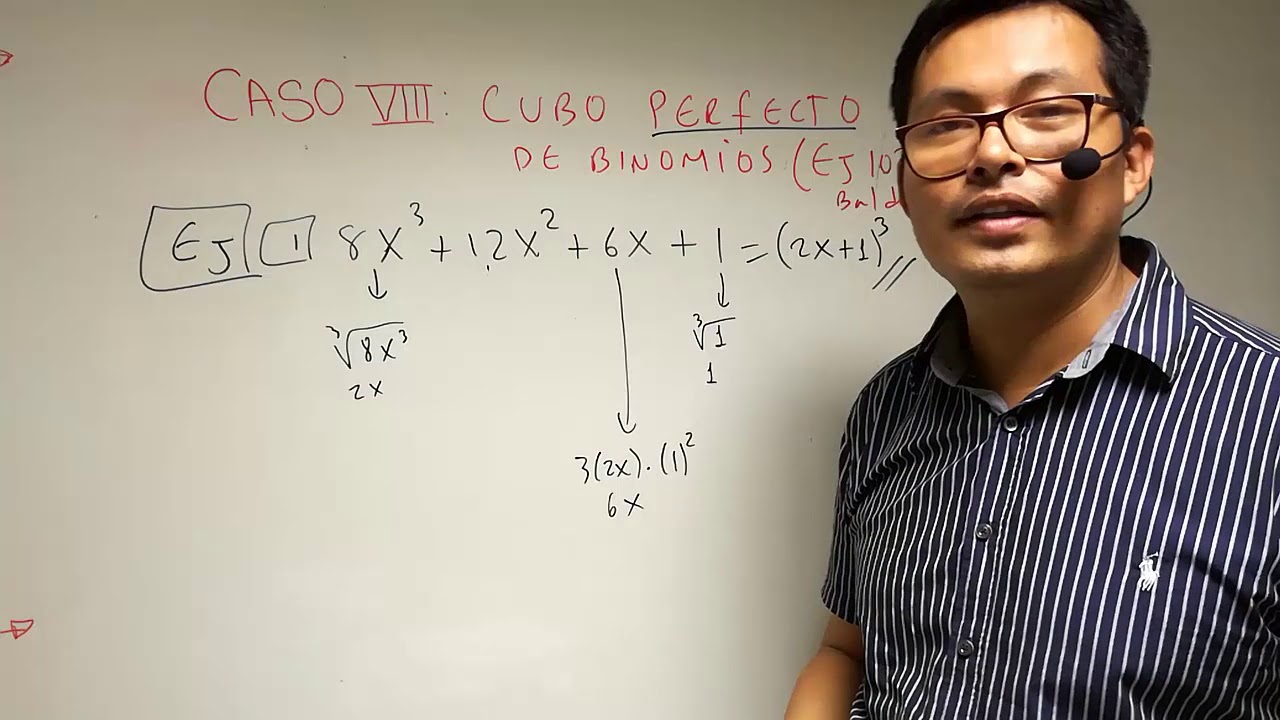 CASO VIII: CUBO PERfECTO
DE BINOMIOS (EJ 10
EJ 1 8x³ + 12x² + 6x + 1 = (2x+1)³ //
∛8x³
2x
∛1
1
3(2x)·(1)²
6x